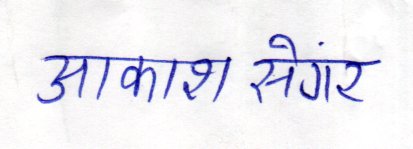 आकाश सेंगर